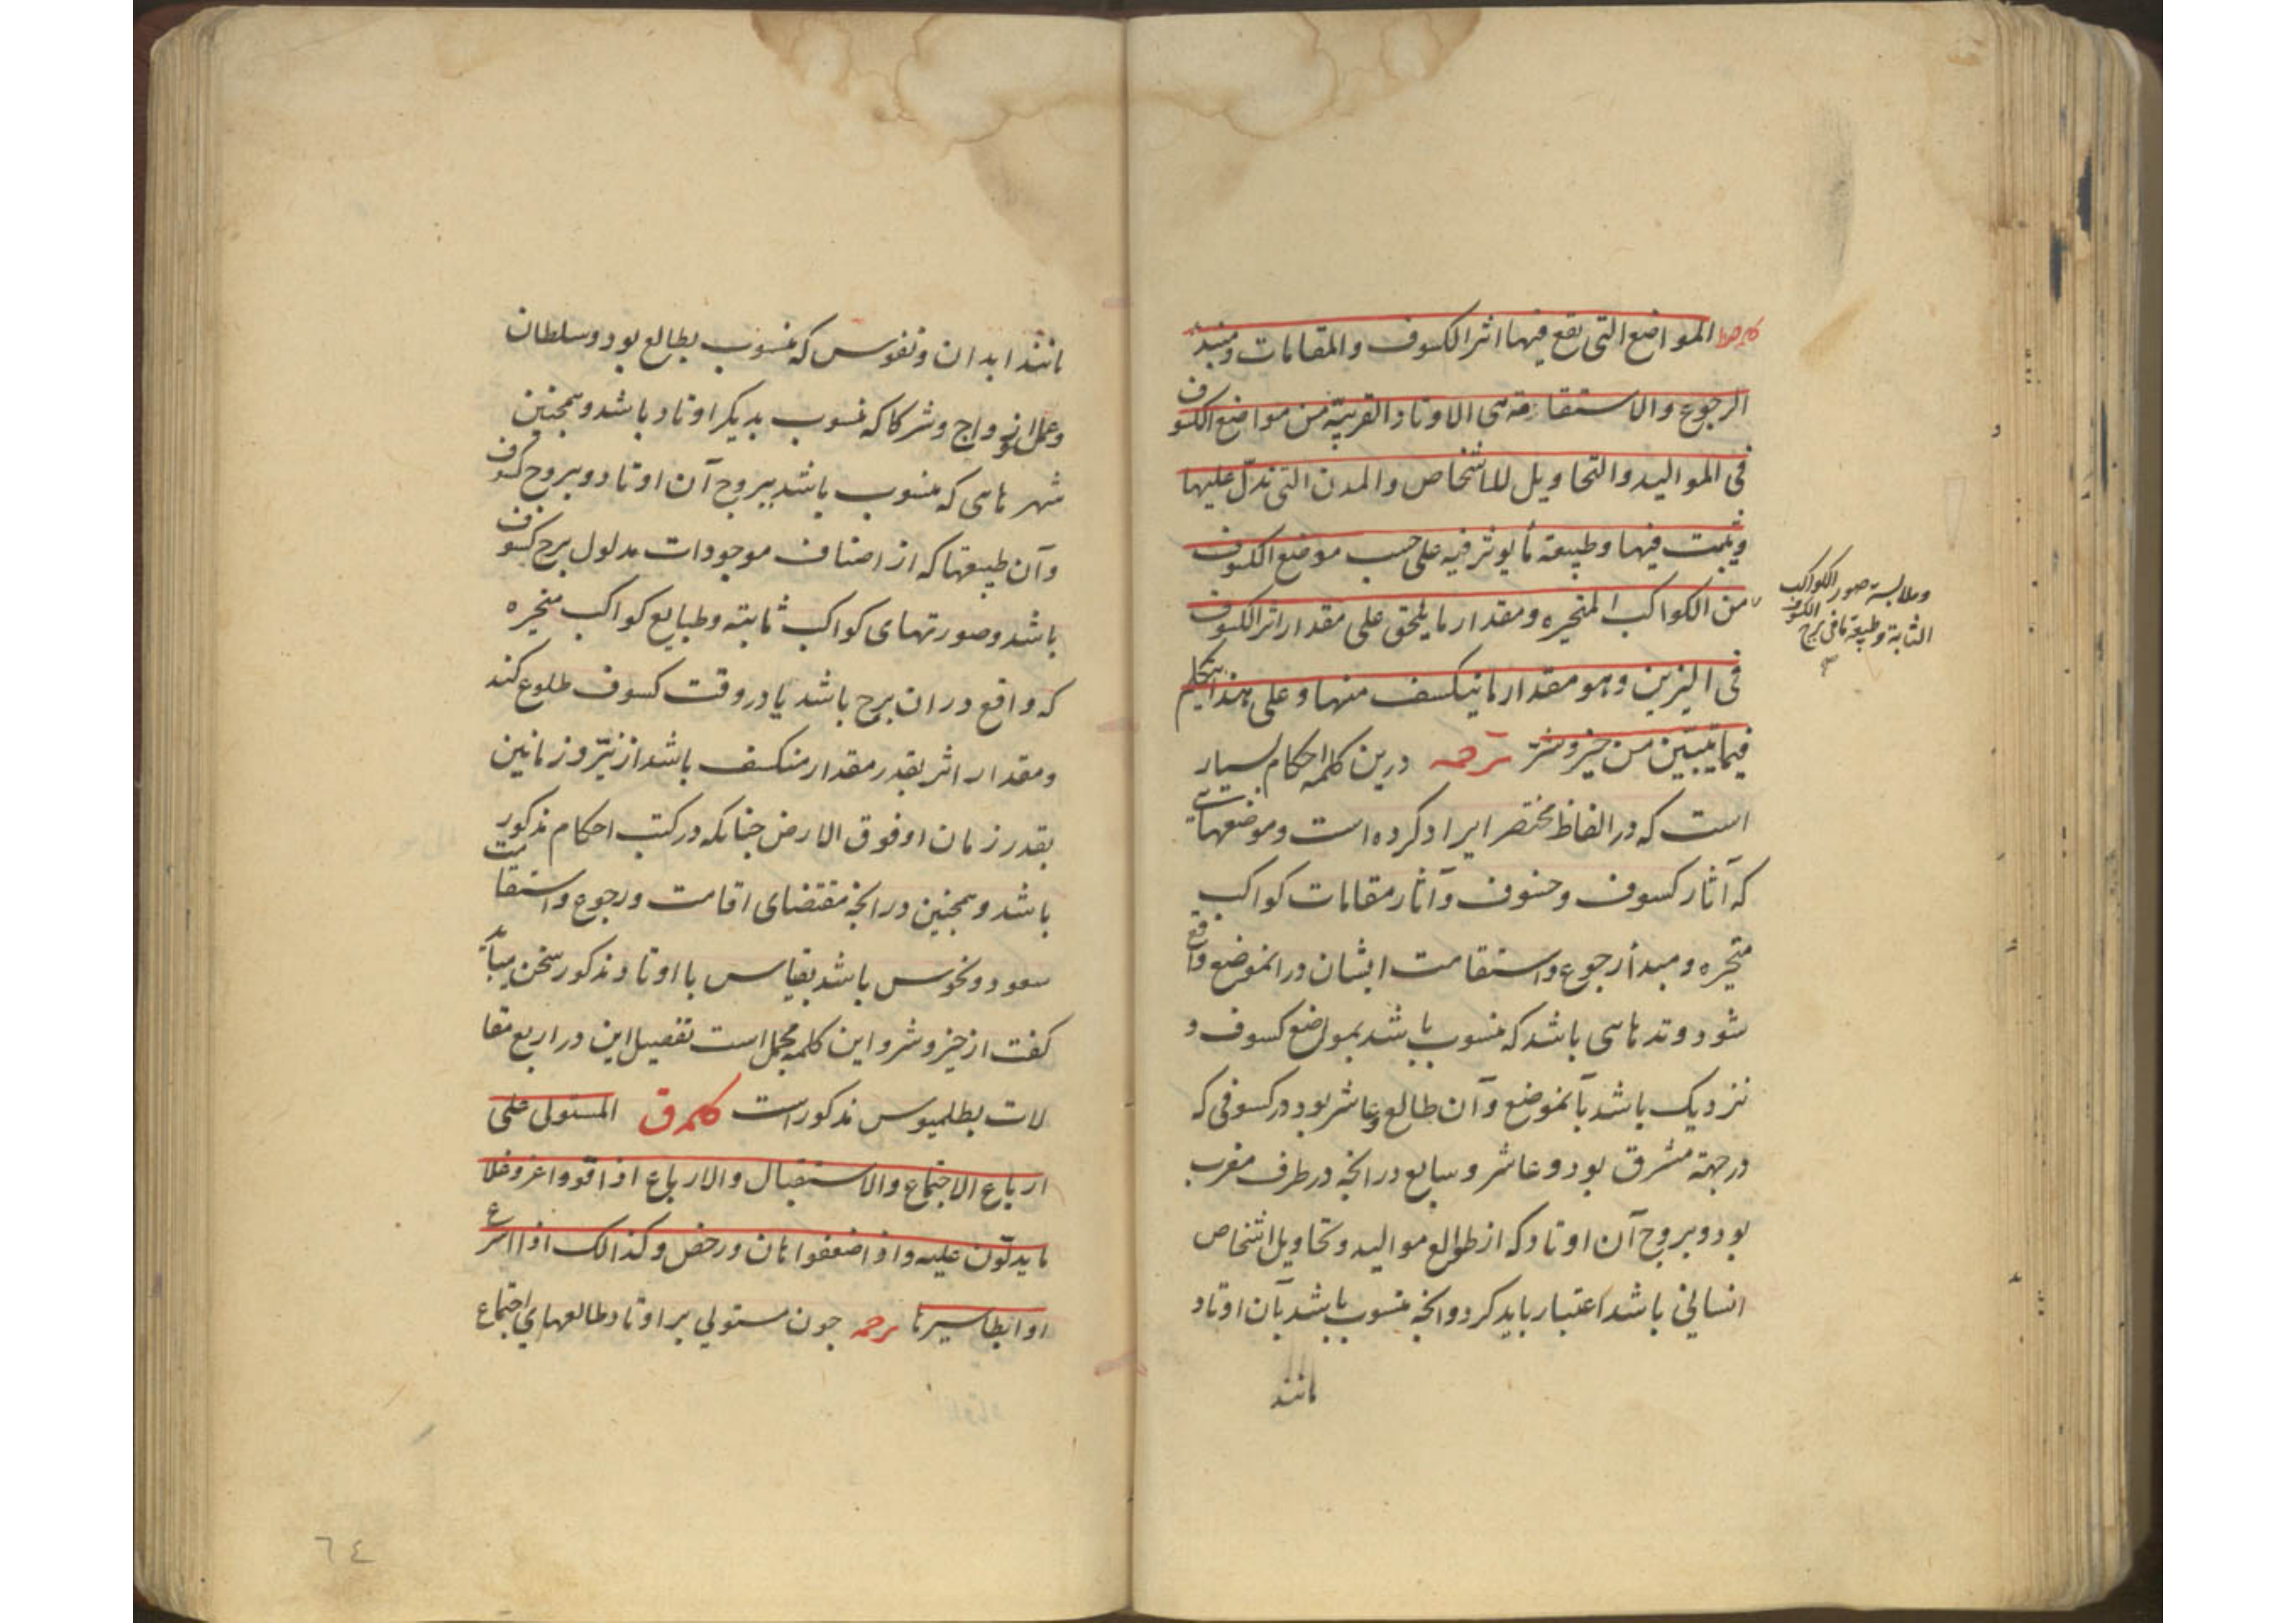 كلمه صط المواضع التی یقع فیها اثر الکسوف والمقامات ومبدأ
الرجوع والاستقامة هی الاوتاد القریبة من مواضع الکسوف
فی الموالید والتحاویل للاشخاص والمدن التی تدلّ علیها
ویثبت فیها وطبیعة ما یوثر فیه علی حسب موضع الکسوف
من الکواکب المتحیره ومقدار ما یلحق علی مقدار اثر الکسوف
فی النیرین وهو مقدار ما ینکسف منها وعلی هذا یتکلم
فیما یتبیّن من خیر وشرّ ترجمه درین کلمه احکام بسیار
است که در الفاظ مختصر ایراد کرده است وموضعهائی
که آثار کسوف وخسوف وآثار مقامات کواکب
متحیره ومبدأ رجوع واستقامت ایشان در انموضع واقع
شود وتدهایی باشد که منسوب باشد بمواضع کسوف و
نزدیک باشد بآنموضع وآن طالع وعاشر بود در کسوفی که
در جهة مشرق بود وعاشر وسابع در انچه در طرف مغرب
بود وبروج آن اوتاد که از طوالع موالید وتحاویل اشخاص
انسانی باشد اعتبار باید کرد وانچه منسوب باشد بآن اوتاد
مانند
وملابسة صور الکواکب
الثابتة وطبیعة ما فی برج الکسوف
مانند ابدان ونفوس که منسوب بطالع بود وسلطان
وعمل وازواج وشرکا که منسوب بدیکر اوتاد باشد وهمچنین
شهرهایی که منسوب باشد ببروج آن اوتاد وبروج کسوف
وآن طبیعتها که از اصناف موجودات مدلول برج کسوف
باشد وصورتهای کواکب ثابته وطبایع کواکب متحیره
که واقع در ان برج باشد یا در وقت کسوف طلوع کند
ومقدار اثر بقدر مقدار منکسف باشد از نیّر وزمانین
بقدر زمان او فوق الارض چنانکه در کتب احکام مذکور
باشد وهمچنین در انچه مقتضای اقامت ورجوع واستقامت
سعود ونحوس باشد بقیاس با اوتاد مذکور سخن بباید
کفت از خیر وشر واین کلمه مجمل است تفصیل این در اربع مقا
لات بطلمیوس مذکور است کلمه ق المستولی علی
ارباع الاجتماع والاستقبال والارباع اذا قووا عز وغلا
ما یدلّون علیه واذا ضعفوا هان ورخص وکذالک اذا اسرع
او ابطا سیرها ترجمه چون مستولی بر اوتاد طالعهای اجتماع
٦٤